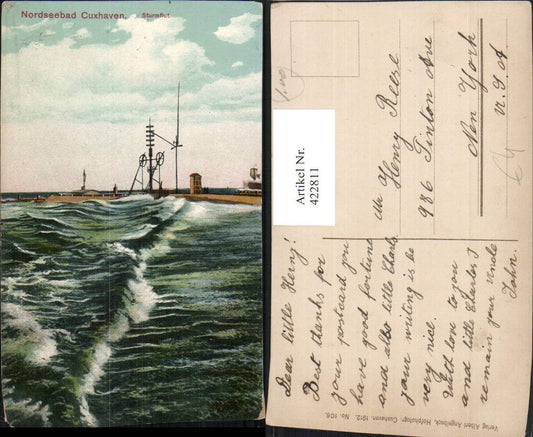 Nordseebad Cuxhaven. Sturmflut.
Artikel Nr.
422811
Mr Henry Reese
986 Tinton Ave
New York
U. S. A
Dear little Henry!
Best thanks for
your postcard you
have good fortune
and also little Charls
your writing is be
very nice.
With love to you
and little Charles I
remain your Uncle
John.
Verlag Albert Angelbeck, Hofphotogr. Cuxhaven. 1912. No. 108.